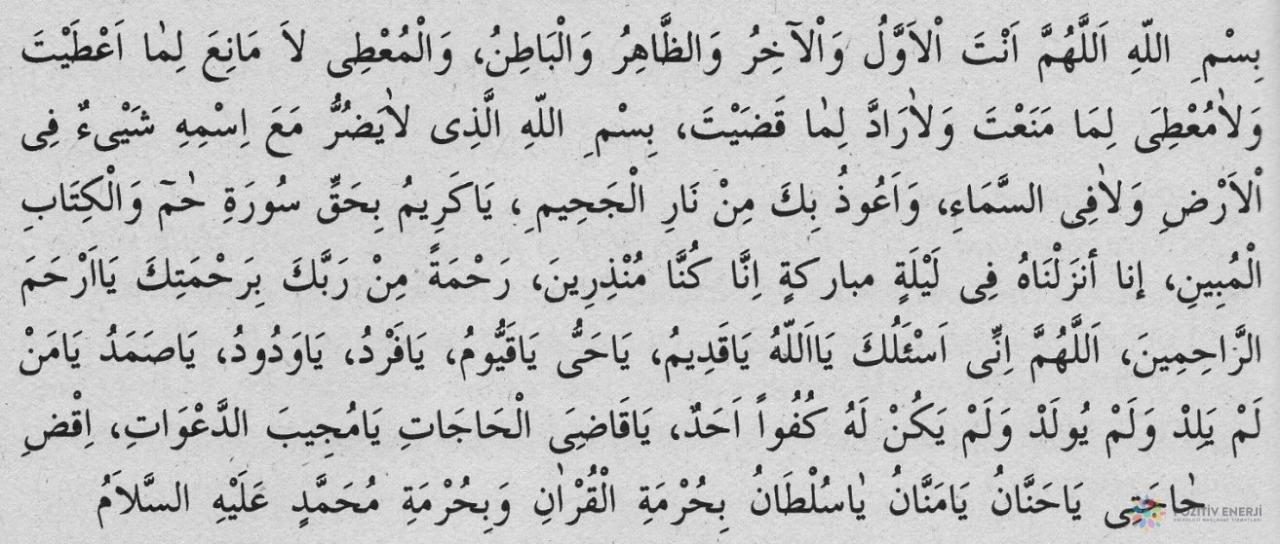 بِسْمِ اللّهِ اَللَّهُمَّ اَنْتَ اْلاَوَّلُ وَاْلآخِرُ وَالظَّاهِرُ وَالْبَاطِنُ، وَالْمُعْطِى لاَ مَانِعَ لِمٰا اَعْطَيْتَ
وَلاٰمُعْطِىَ لِمَا مَنَعْتَ وَلاٰرَادَّ لِمٰا قَضَيْتَ، بِسْمِ اللّهِ الَّذِى لاٰيَضُرُّ مَعَ اِسْمِهِ شَيْىءٌ فِى
اْلاَرْضِ وَلاٰفِى السَّمَاءِ، وَاَعُوذُ بِكَ مِنْ نَارِ الْجَحِيمِ، يَاكَرِيمُ بِحَقِّ سُورَةِ حٰمٓ وَالْكِتَابِ
الْمُبِينِ، إنا أنزَلْنَاهُ فِى لَيْلَةٍ مباركةٍ اِنَّا كُنَّا مُنْذِرِينَ، رَحْمَةً مِنْ رَبَّكَ بِرَحْمَتِكَ يَااَرْحَمَ
الرَّاحِمِينَ، اَللَّهُمَّ اِنِّى اَسْئَلُكَ يَااَللّهُ يَاقَدِيمُ، يَاحَىُّ يَاقَيُّومُ، يَافَرْدُ، يَاوَدُودُ، يَاصَمَدُ يَامَنْ
لَمْ يَلِدْ وَلَمْ يُولَدْ وَلَمْ يَكُنْ لَهُ كُفُواً اَحَدٌ، يَاقَاضِىَ الْحَاجَاتِ يَامُجِيبَ الدَّعْوَاتِ، اِقْضِ
حٰاجَتِى يَاحَنَّانُ يَامَنَّانُ يٰاسُلْطَانُ بِحُرْمَةِ الْقُرْاٰنِ وَبِحُرْمَةِ مُحَمَّدٍ عَلَيْهِ السَّلاَمُ
POZİTİV ENERJİ